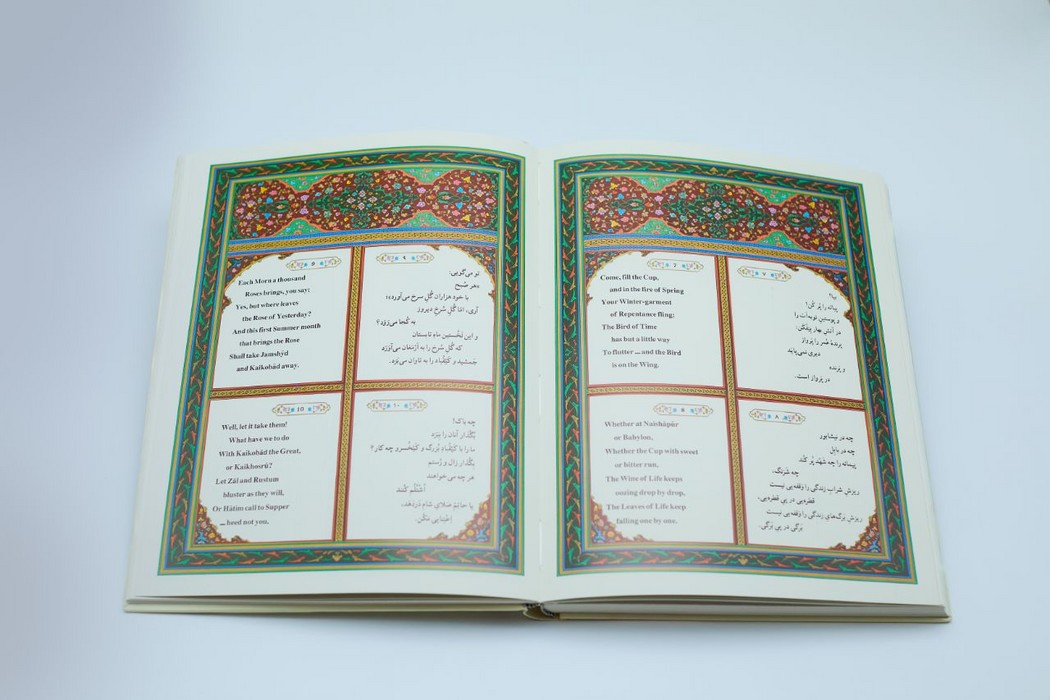 7
Come, fill the Cup,
and in the fire of Spring
Your Winter-garment
of Repentance fling:
The Bird of Time
has but a little way
To flutter — and the Bird
is on the Wing.
۷
پیاله را پُر کُن!
و پوستینِ توبه‌ات را
در آتش بهار
پرندهٔ عُمر را پَرواز
دیری نمی‌پایَد
و پرنده
در پَرواز است.
8
Whether at Naishápúr
or Babylon,
Whether the Cup with sweet
or bitter run,
The Wine of Life keeps
oozing drop by drop,
The Leaves of Life keep
falling one by one.
۸
چه در نیشابور
چه در بابل
پیمانه را چه شَهْد پُر کُند
چه شَرَنگ،
ریزشِ شرابِ زندگی را وَقفه‌یی نیست
قطره‌یی در پیِ قطره‌یی،
ریزشِ برگ‌های زندگی را وَقفه‌یی نیست
برگی در پیِ برگی.
9
Each Morn a thousand
Roses brings, you say;
Yes, but where leaves
the Rose of Yesterday?
And this first Summer month
that brings the Rose
Shall take Jamshýd
and Kaikobád away.
۹
تو می‌گویی:
«هر صُبح
با خود هزاران گُلِ سرخ می‌آورد»؛
آری، امّا گُلِ سُرخِ دیروز
به کُجا می‌رَوَد؟
و این نَخُستین ماهِ تابستان
که گُلِ سُرخ را به اَرْمَغان می‌آوَرَد
جَمشید و کَیْقُباد را به تاوان می‌بَرَد.
10
Well, let it take them!
What have we to do
With Kaikobád the Great,
or Kaikhosrú?
Let Zál and Rustum
bluster as they will,
Or Hátim call to Supper
— heed not you,
۱۰
چه باک!
بگُذار آنان را بِبَرَد
ما را با کَیْقُبادِ بُزرگ و کَیْخُسرو چه کار؟
بگُذار زال و رُستم
هر چه می خواهند
اُشتُلُم کُنَند
یا حاتِم صَلایِ شام دَردَهَد،
اِعْتِنایی مَکُن.